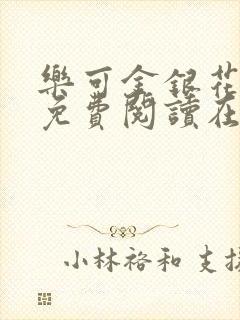 樂可金銀花
免費閱讀在
小林裕和 支援